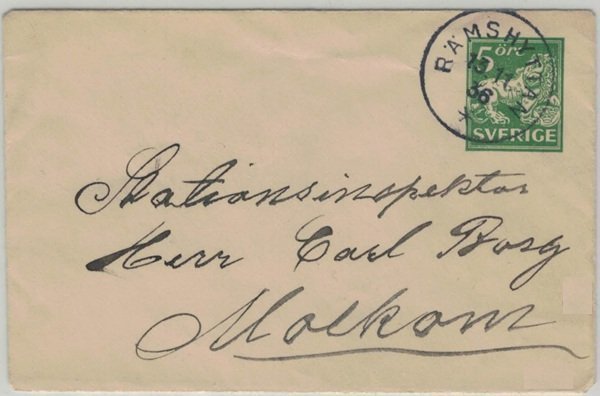 RÄMSHYTTAN
5 öre
13.11.
36
SVERIGE
Stationsinspektor
Herr Carl Borg
Molkom